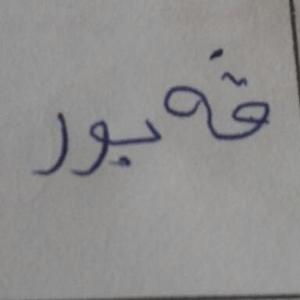 قەبور